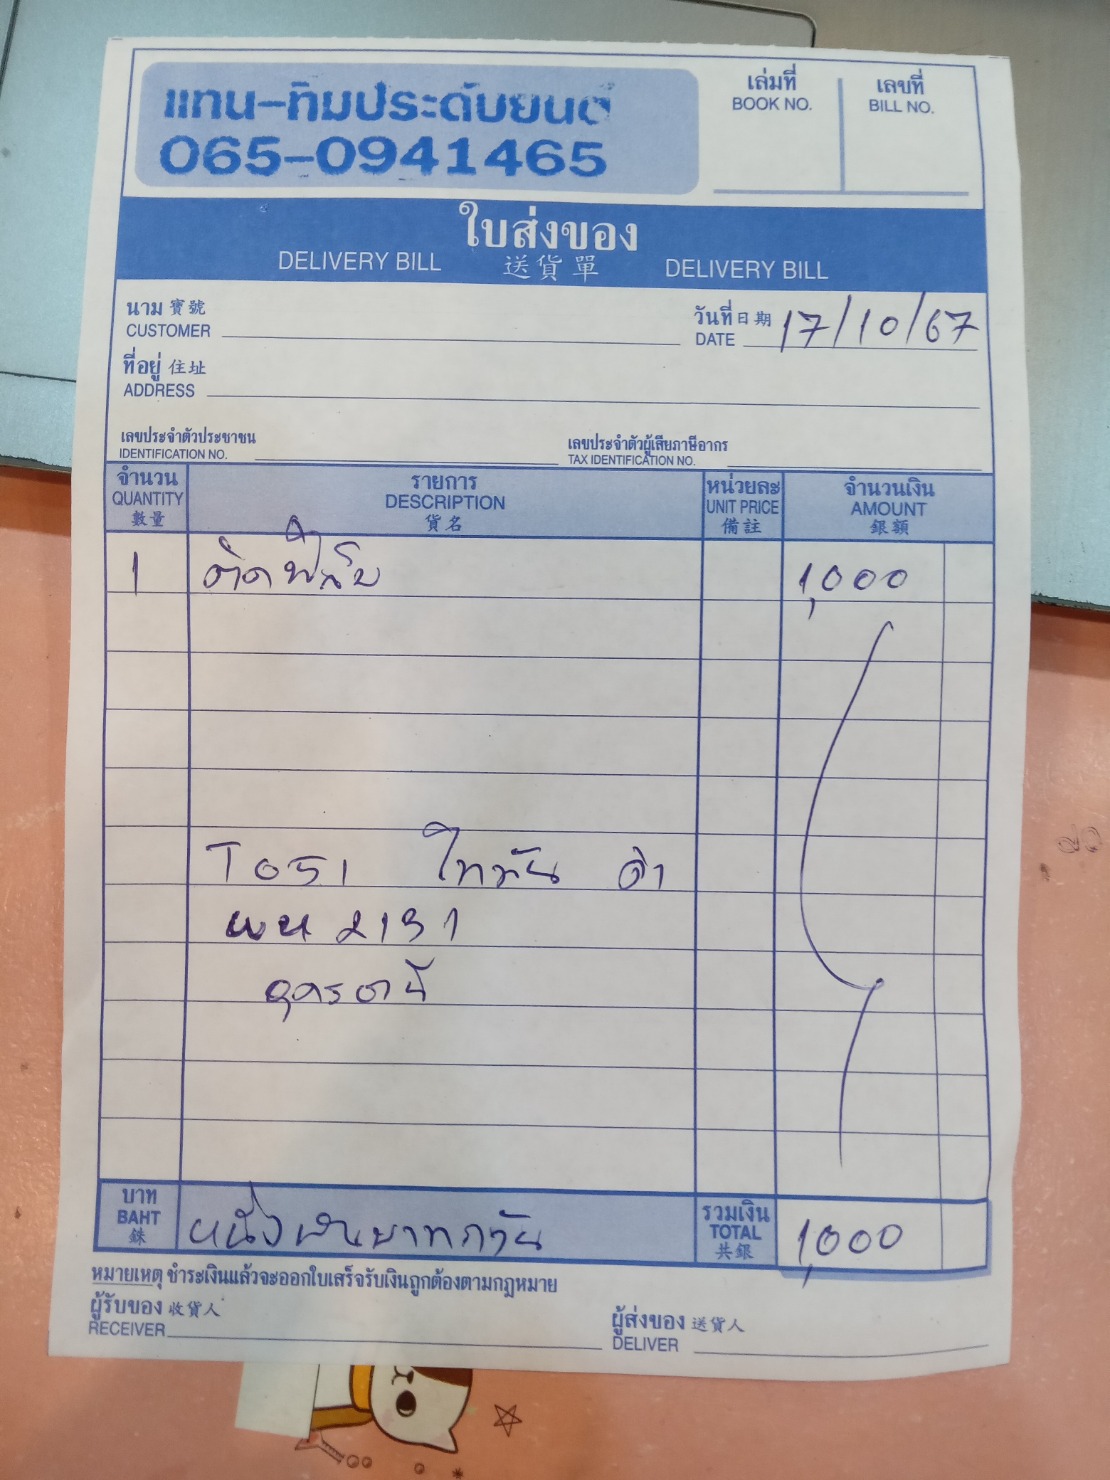 แทน-ทิมประดับยนต์
065-0941465
เล่มที่
BOOK NO.
เลขที่
BILL NO.
ใบส่งของ
DELIVERY BILL 送貨單 DELIVERY BILL
นาม 寶號
CUSTOMER
วันที่ 日期
DATE 17/10/67
ที่อยู่ 住址
ADDRESS
เลขประจำตัวประชาชน
IDENTIFICATION NO.
เลขประจำตัวผู้เสียภาษีอากร
TAX IDENTIFICATION NO.
จำนวน
QUANTITY
數量
รายการ
DESCRIPTION
貨名
หน่วยละ
UNIT PRICE
備註
จำนวนเงิน
AMOUNT
銀額
1 ติดฟิล์ม 1,000
T051 ไททัน ดำ
ผน 2131
อุดรธานี
บาท
BAHT
銖
หนึ่งพันบาทถ้วน
รวมเงิน
TOTAL
共銀
1,000
หมายเหตุ ชำระเงินแล้วจะออกใบเสร็จรับเงินถูกต้องตามกฎหมาย
ผู้รับของ 收貨人
RECEIVER
ผู้ส่งของ 送貨人
DELIVER